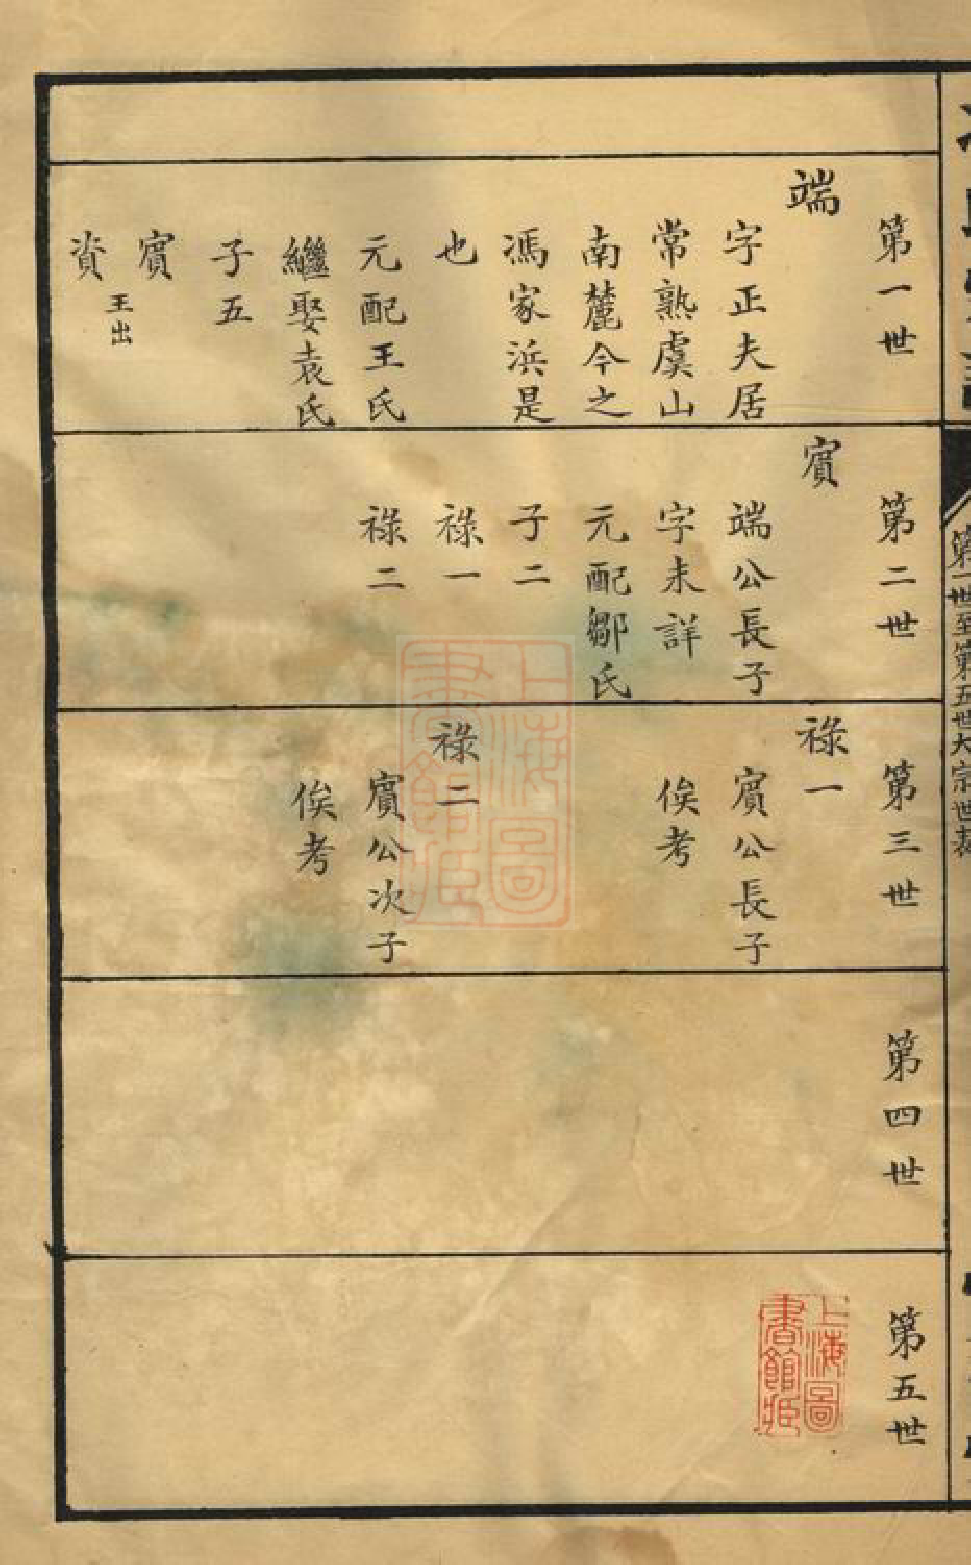 第一世
端
字正夫居
常熟虞山
南麓今之
馮家浜是
也
元配王氏
繼娶袁氏
子五
賓
王出
資
第二世
賓
端公長子
字未詳
元配鄒氏
子二
祿一
祿二
第三世
祿一
賓公長子
俟考
祿二
賓公次子
俟考
第四世
第五世
第一世至第五世大宗世表
上海圖
書館藏
上海圖
書館藏